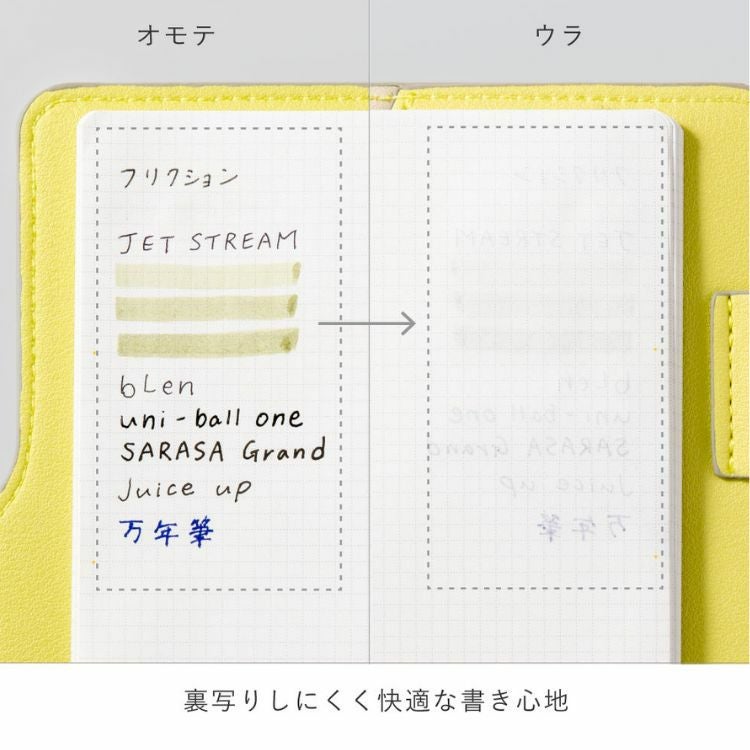 オモテ
ウラ
フリクション
JET STREAM
bLen
uni-ball one
SARASA Grand
Juice up
万年筆
裏写りしにくく快適な書き心地